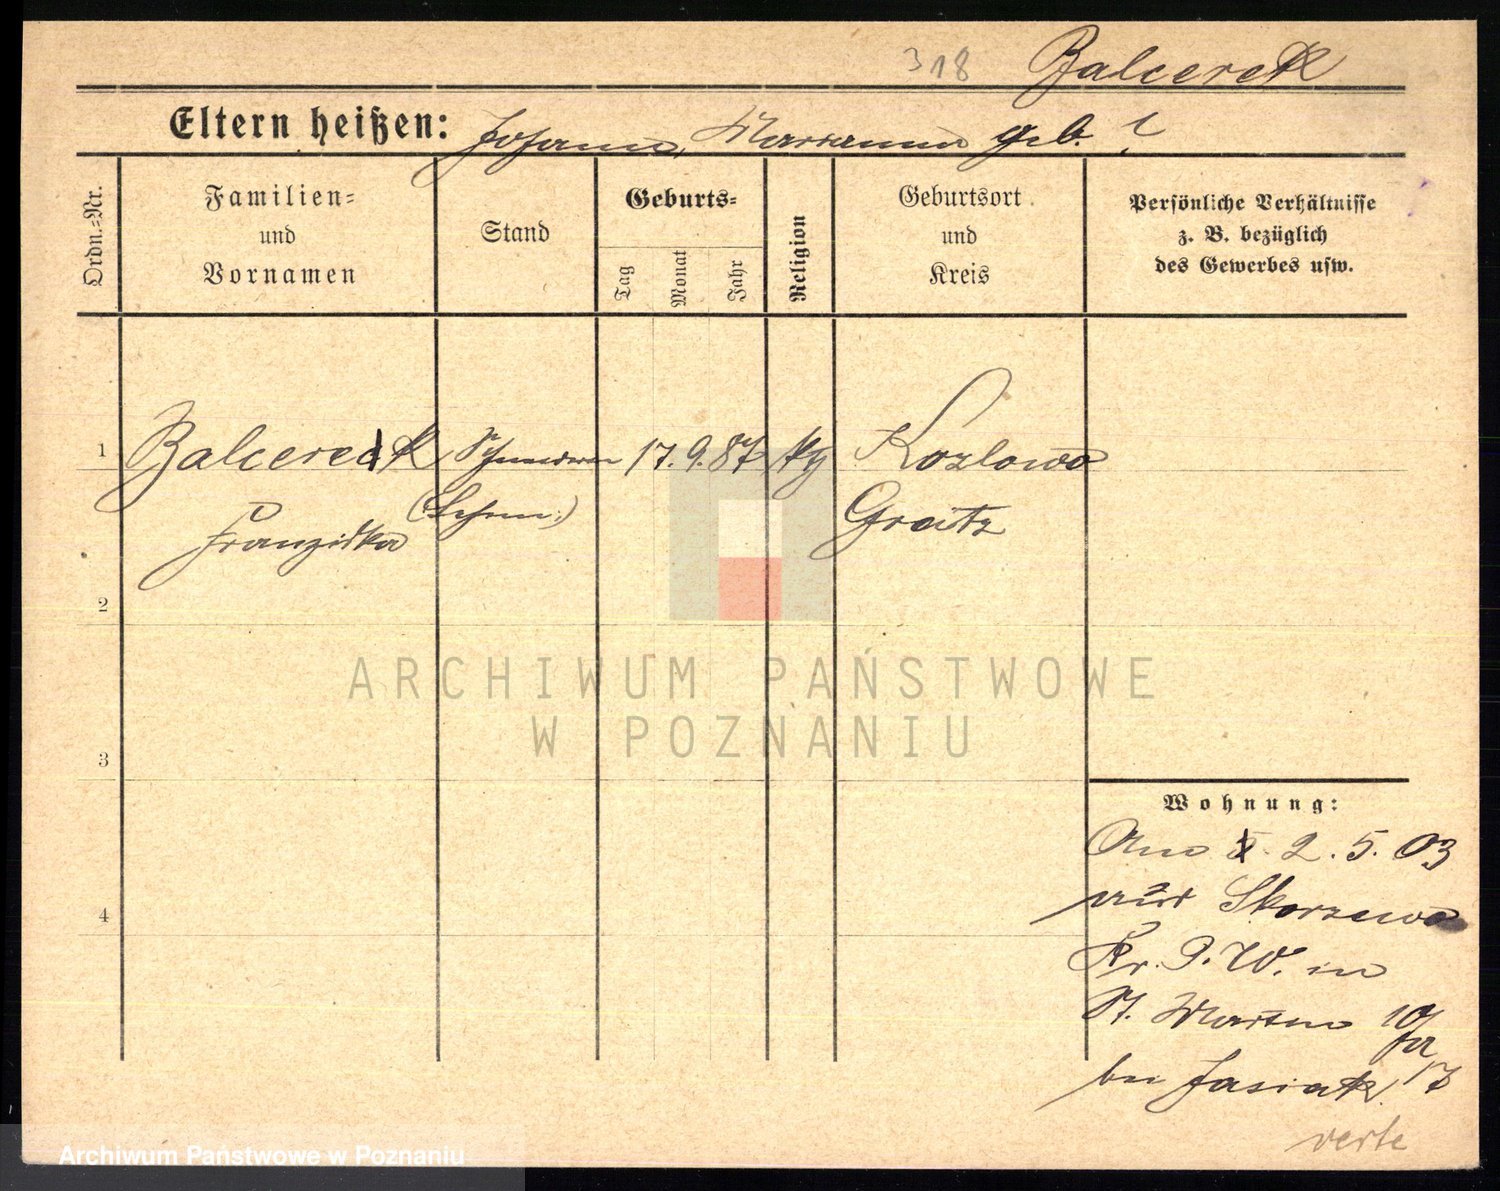 318 Balcerek
Eltern heißen: Johann, Marianna geb. ?
Ordn.=Nr.
Familien=
und
Vornamen
Stand
Geburts=
Tag
Monat
Jahr
Religion
Geburtsort
und
Kreis
Persönliche Verhältnisse
z. B. bezüglich
des Gewerbes usw.
1 Balcerek 17. 9. 87 Kozlowo
Franziska Graetz
2
3
4
ARCHIWUM PAŃSTWOWE
W POZNANIU
Wohnung:
2. 5. 03
aus Skorzewo
Kr. P. W. in
St. Martin
bei Jasiak 17
verte
Archiwum Państwowe w Poznaniu